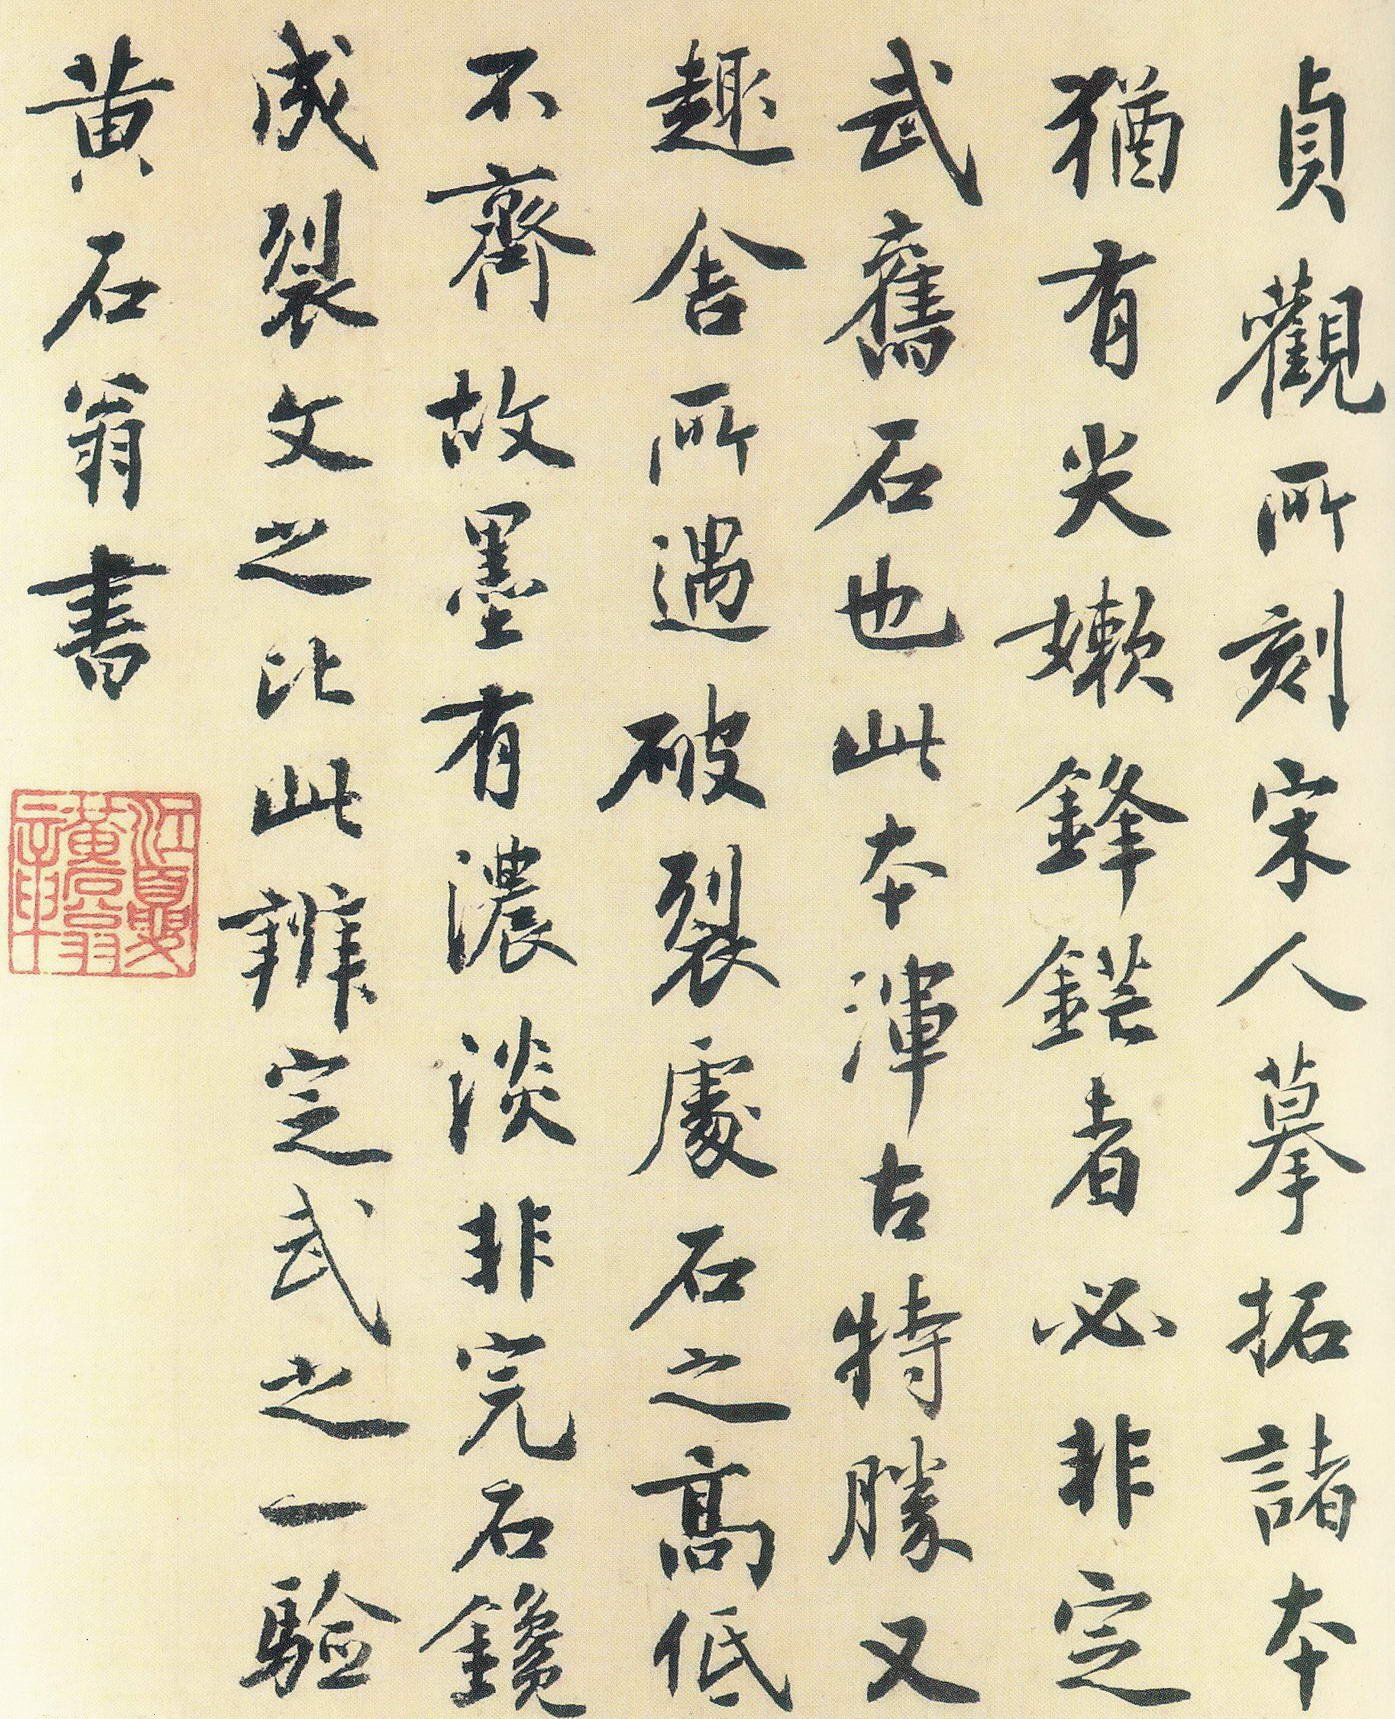 貞觀所刻宋人摹拓諸本
猶有尖嫩鋒鋩者必非定
武舊石也此本渾古特勝又
趣舍所遇破裂處石之高低
不齊故墨有濃淡非完石鑱
成裂文之比此辨定武之一驗
黃石翁書